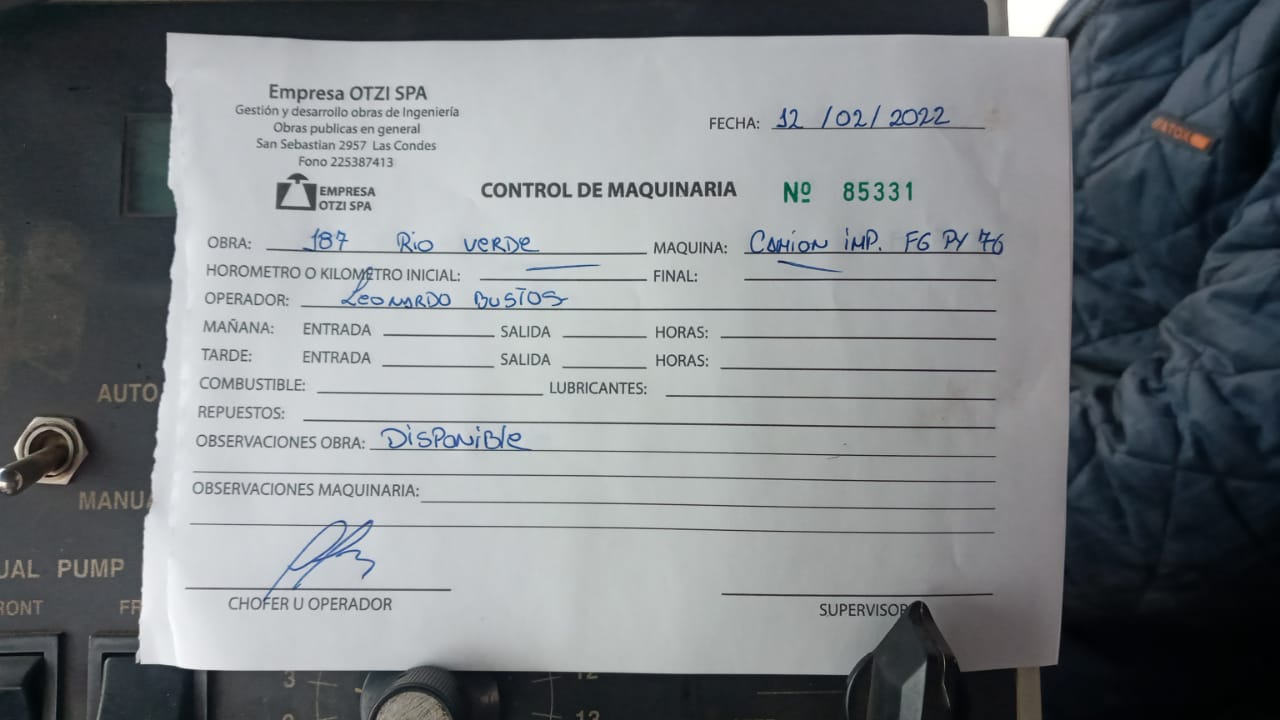 Empresa OTZI SPA
Gestión y desarrollo obras de Ingeniería
Obras publicas en general
San Sebastian 2957 Las Condes
Fono 225387413
EMPRESA
OTZI SPA
FECHA: 12 / 02 / 2022
CONTROL DE MAQUINARIA Nº 85331
OBRA: 187 Rio VERDE MAQUINA: CAMION IMP. FG PY 76
HOROMETRO O KILOMETRO INICIAL: FINAL:
OPERADOR: LEONARDO BUSTOS
MAÑANA: ENTRADA SALIDA HORAS:
TARDE: ENTRADA SALIDA HORAS:
COMBUSTIBLE: LUBRICANTES:
REPUESTOS:
OBSERVACIONES OBRA: DisPoniBle
OBSERVACIONES MAQUINARIA:
CHOFER U OPERADOR SUPERVISOR
AUTO
MANUA
UAL PUMP
RONT FR
3 12
13